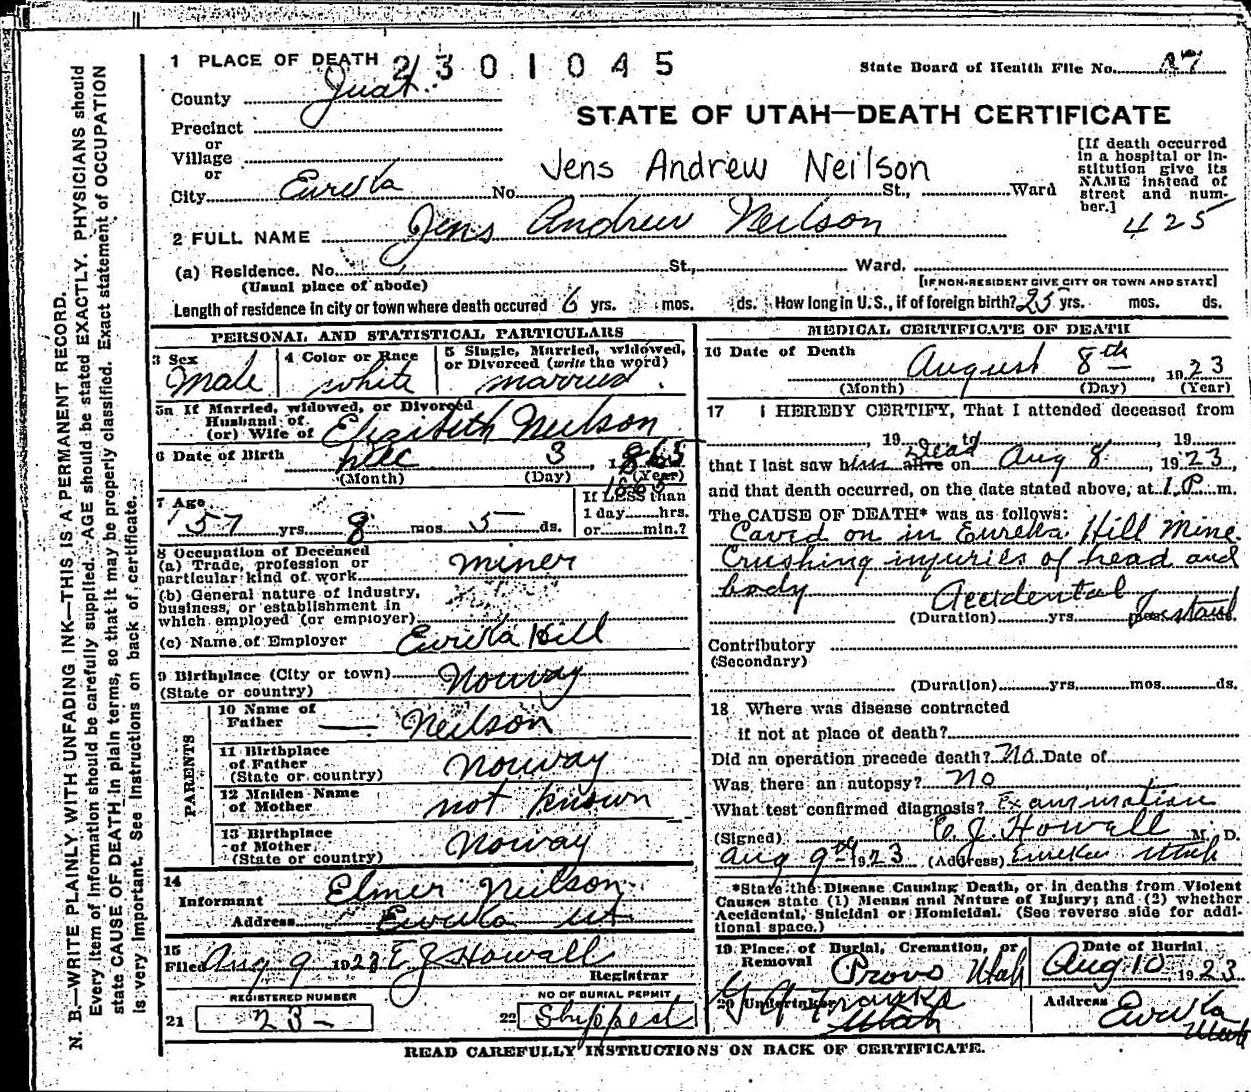 1 PLACE OF DEATH 2301045
State Board of Health File No. 27
County Juab
STATE OF UTAH—DEATH CERTIFICATE
Precinct
or
Village
or
City Eureka No. St., Ward
Jens Andrew Neilson
[If death occurred in a hospital or institution give its NAME instead of street and number.]
425
2 FULL NAME Jens Andrew Neilson
(a) Residence. No. St., Ward.
(Usual place of abode) [IF NON-RESIDENT GIVE CITY OR TOWN AND STATE]
Length of residence in city or town where death occured 6 yrs. mos. ds. How long in U.S., if of foreign birth? 25 yrs. mos. ds.
PERSONAL AND STATISTICAL PARTICULARS
3 Sex Male
4 Color or Race white
5 Single, Married, widowed, or Divorced (write the word) married
5a If Married, widowed, or Divorced
Husband of
(or) Wife of Elizabeth Neilson
6 Date of Birth Dec 3, 1865
(Month) (Day) (Year)
1865
7 Age 57 yrs. 8 mos. 5 ds.
If LESS than 1 day hrs. or min.?
8 Occupation of Deceased
(a) Trade, profession or particular kind of work miner
(b) General nature of industry, business, or establishment in which employed (or employer)
(c) Name of Employer Eureka Hill
9 Birthplace (City or town)
(State or country) Norway
PARENTS
10 Name of Father — Neilson
11 Birthplace of Father (State or country) Norway
12 Maiden Name of Mother not known
13 Birthplace of Mother (State or country) Noway
14
Informant Elmer Neilson
Address Eureka Ut
15
Filed Aug 9 1923 E J Howell
Registrar
REGISTERED NUMBER
21 23-
NO OF BURIAL PERMIT
22 Shipped
MEDICAL CERTIFICATE OF DEATH
16 Date of Death August 8th 1923
(Month) (Day) (Year)
17 I HEREBY CERTIFY, That I attended deceased from
, 19 to , 19
that I last saw him alive Dead on Aug 8, 1923,
and that death occurred, on the date stated above, at 1 P. m.
The CAUSE OF DEATH* was as follows:
Caved on in Eureka Hill Mine.
Crushing injuries of head and
body Accidental
(Duration) yrs.
Contributory
(Secondary)
(Duration) yrs. mos. ds.
18 Where was disease contracted
if not at place of death?
Did an operation precede death? No Date of
Was there an autopsy? No
What test confirmed diagnosis? Examination
(Signed) E. J. Howell M. D.
Aug 9th 1923 (Address) Eureka Utah
*State the Disease Causing Death, or in deaths from Violent Causes state (1) Means and Nature of Injury; and (2) whether Accidental, Suicidal or Homicidal. (See reverse side for additional space.)
19 Place of Burial, Cremation, or Removal Provo Utah
Date of Burial Aug 10 1923
20 Undertaker
Utah
Address Eureka
Utah
READ CAREFULLY INSTRUCTIONS ON BACK OF CERTIFICATE.
N. B.—WRITE PLAINLY WITH UNFADING INK—THIS IS A PERMANENT RECORD.
Every item of information should be carefully supplied. AGE should be stated EXACTLY. PHYSICIANS should
state CAUSE OF DEATH in plain terms, so that it may be properly classified. Exact statement of OCCUPATION
is very important. See Instructions on back of certificate.